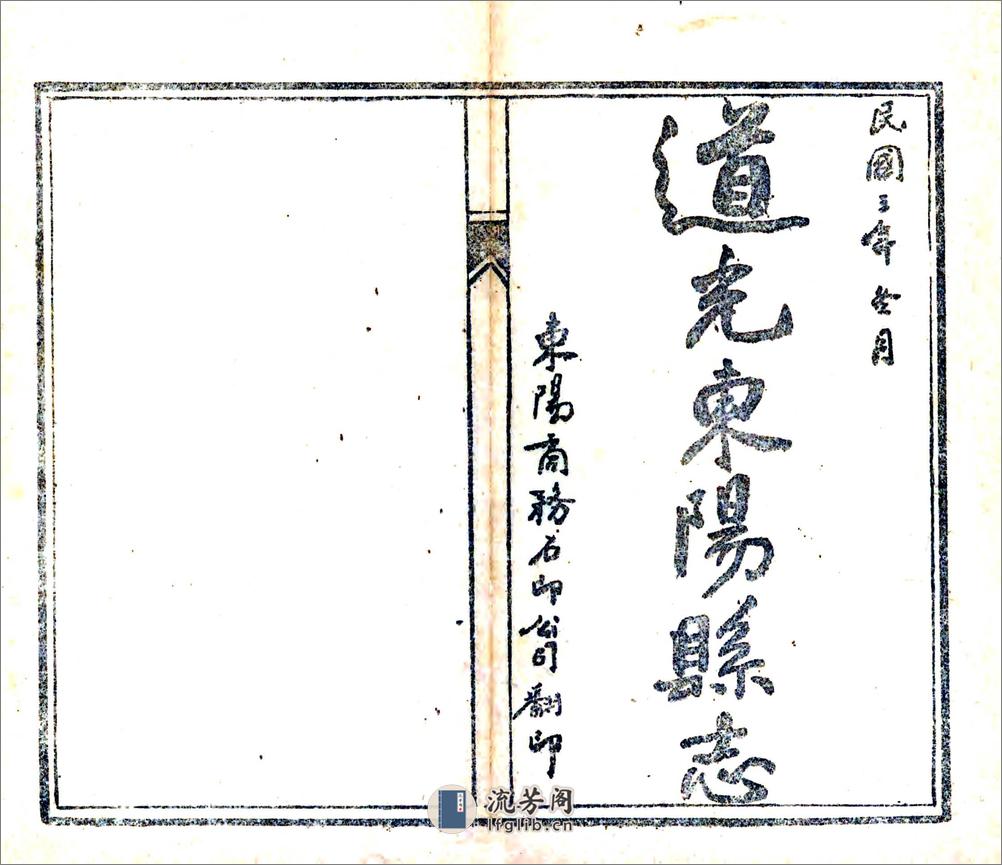 民國三年月
道光東陽縣志
東陽商務石印公司翻印
流芳阁
lfglib.cn